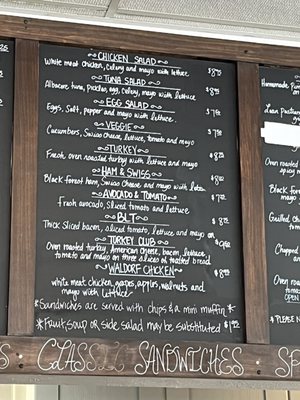 CHICKEN SALAD
White meat chicken, celery and mayo with lettuce $8
TUNA SALAD
Albacore tuna, pickles, egg, celery, mayo with lettuce $8
EGG SALAD
Eggs, Salt, pepper and mayo with lettuce $7
VEGGIE
Cucumbers, Swiss Cheese, lettuce, tomato and mayo $7
TURKEY
Fresh oven roasted turkey with lettuce and mayo $8
HAM & SWISS
Black forest ham, Swiss Cheese and mayo with lettuce $8
AVOCADO & TOMATO
Fresh avocado, sliced tomato and lettuce $7
BLT
Thick Sliced bacon, sliced tomato, lettuce and mayo $8
TURKEY CLUB
Oven roasted turkey, American Cheese, bacon, lettuce,
tomato and mayo on three slices of toasted bread
WALDORF CHICKEN $8
white meat chicken, grapes, apples, walnuts and
mayo with lettuce
*Sandwiches are served with chips & a mini muffin*
*Fruit, soup or side salad may be substituted $1
CLASSIC SANDWICHES
Homemade
Oven roasted
Black fore
Oven roasted
Grilled
Chopped
Oven roast
OPEN
* PLEASE N
SP